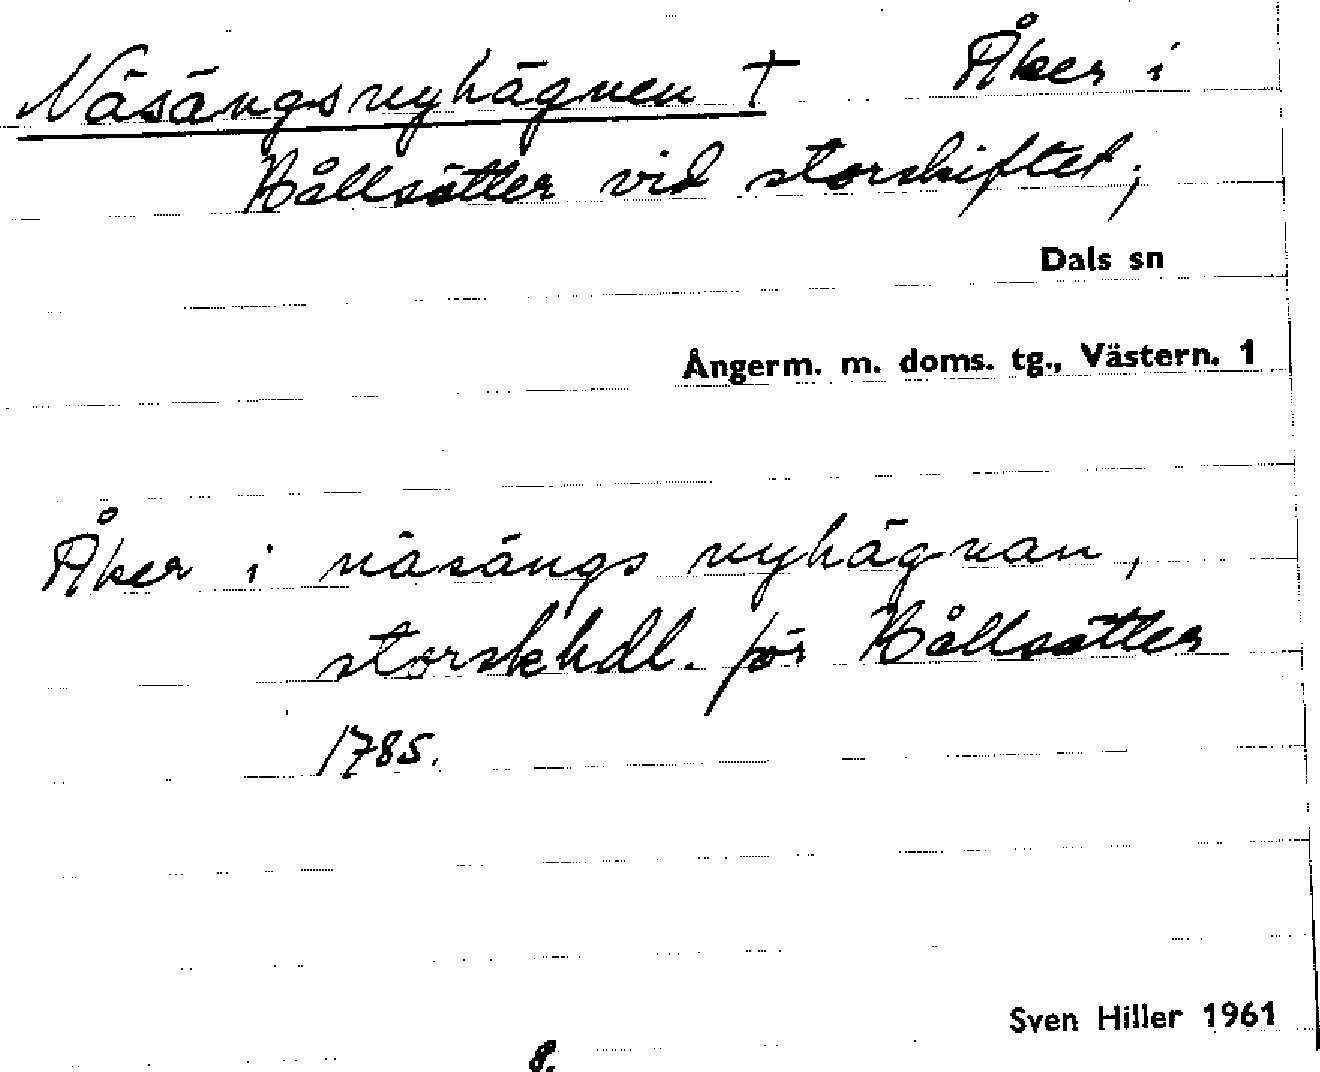 Näsängsnyhägnen † Åker i
Hållsätter vid storskiftet;
Dals sn
Ångerm. m. doms. tg., Västern. 1
Åker i näsängs nyhägnan,
storskhdl. för Hållsätter
1785.
Sven Hiller 1961
8.